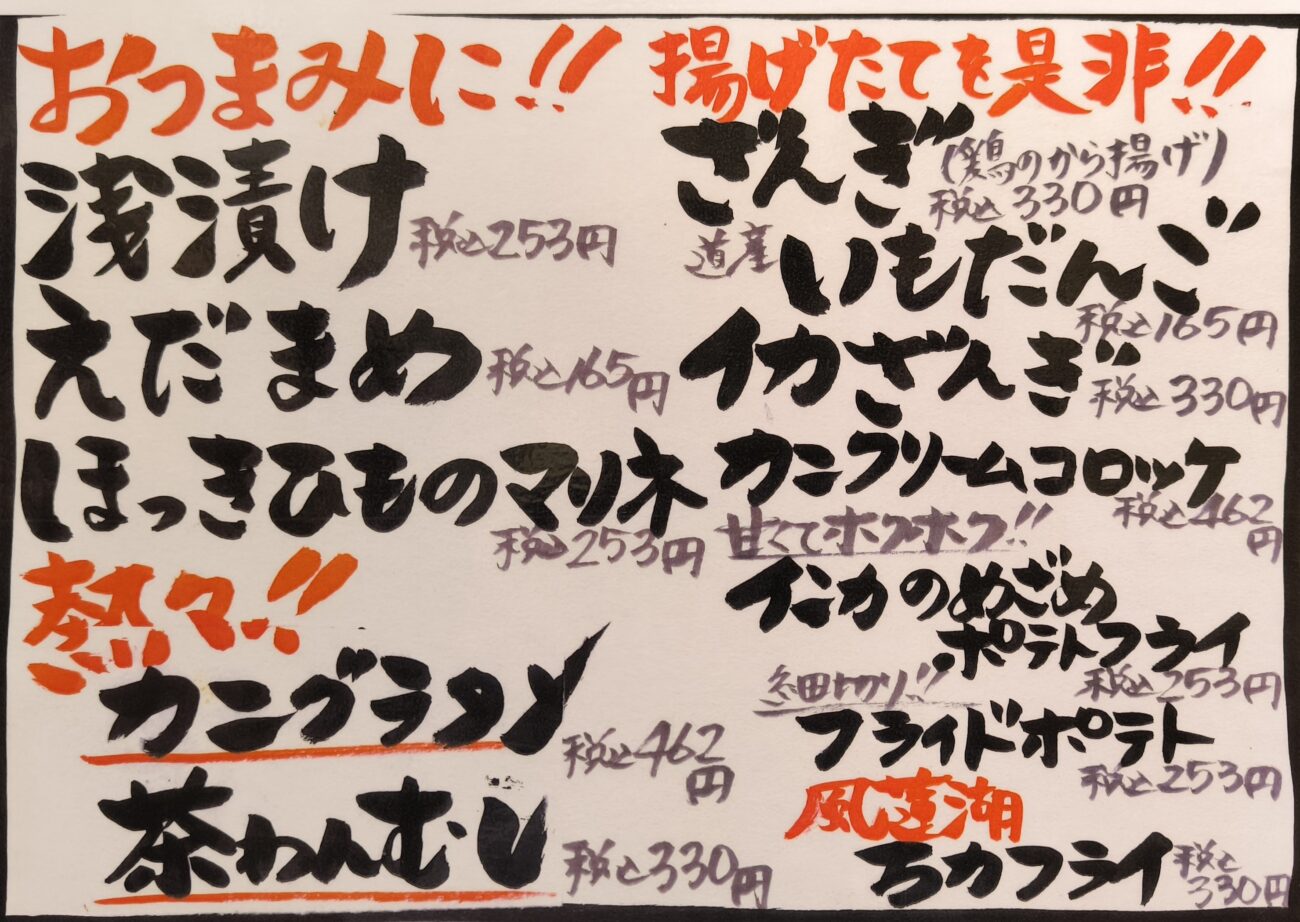 おつまみに!!
浅漬け 税込253円
えだまめ 税込165円
ほっきひものマリネ
税込253円
熱々!!
カニグラタン 税込462円
茶わんむし 税込330円
揚げたてを是非!!
ざんぎ (鶏のから揚げ)
税込330円
道産 いもだんご
税込165円
イカざんぎ 税込330円
カニクリームコロッケ
税込462円
甘くてホクホク!!
インカのめざめ
ポテトフライ
税込253円
細切り!!
フライドポテト
税込253円
風蓮湖
ちカフライ 税込330円